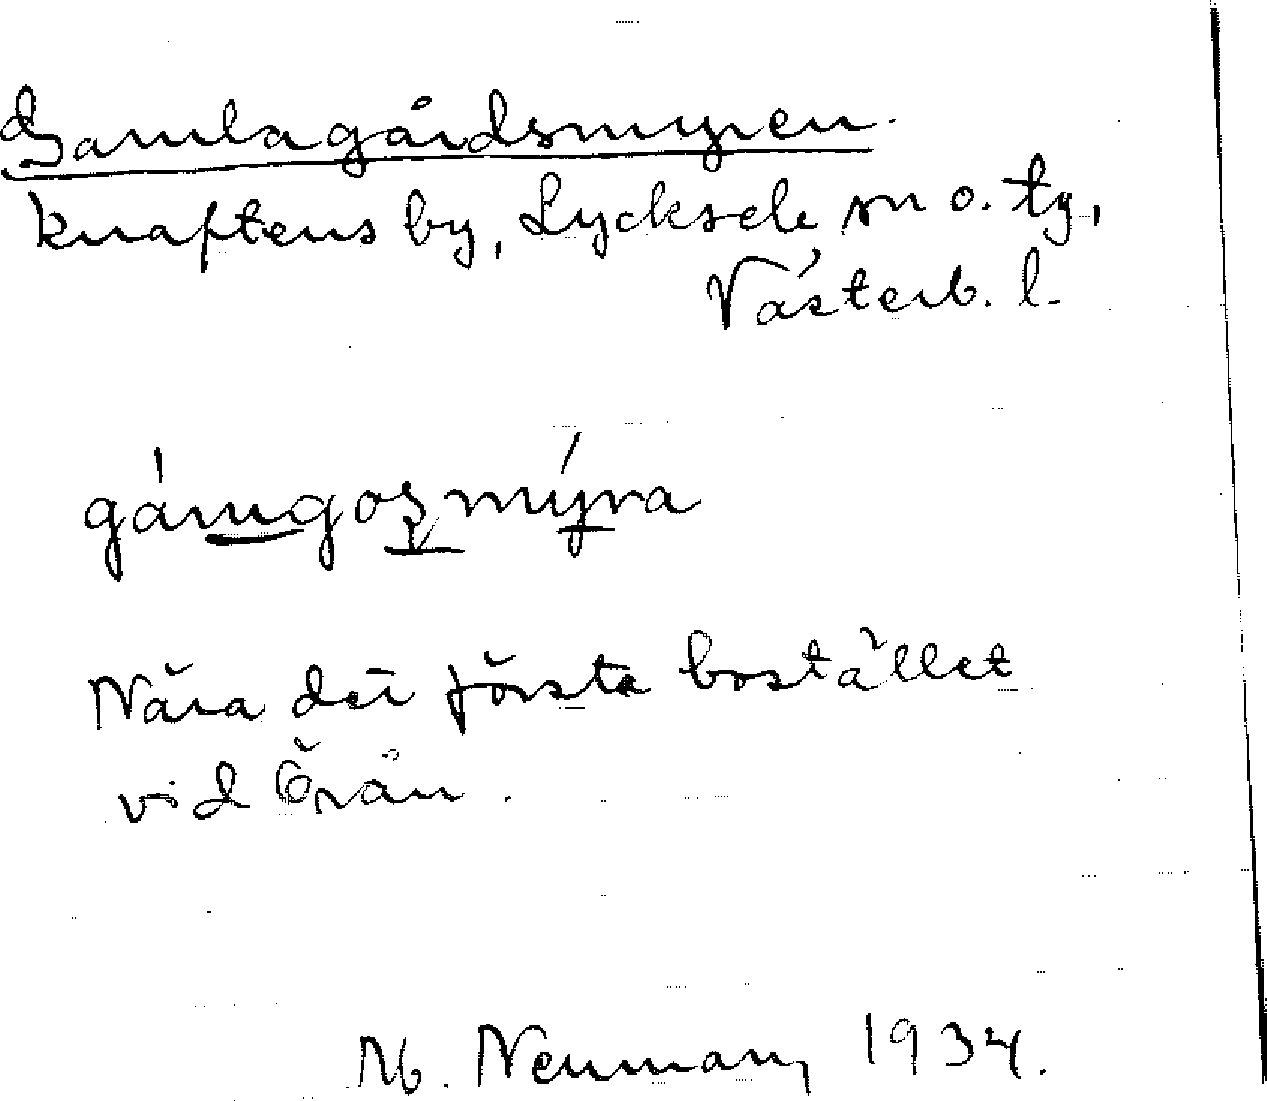 Gamlagårdsmyren.
Knaftens by, Lycksele sn o. tg,
Västerb. l.
Nära det första bostället
vid Örån.
M. Neuman, 1934.